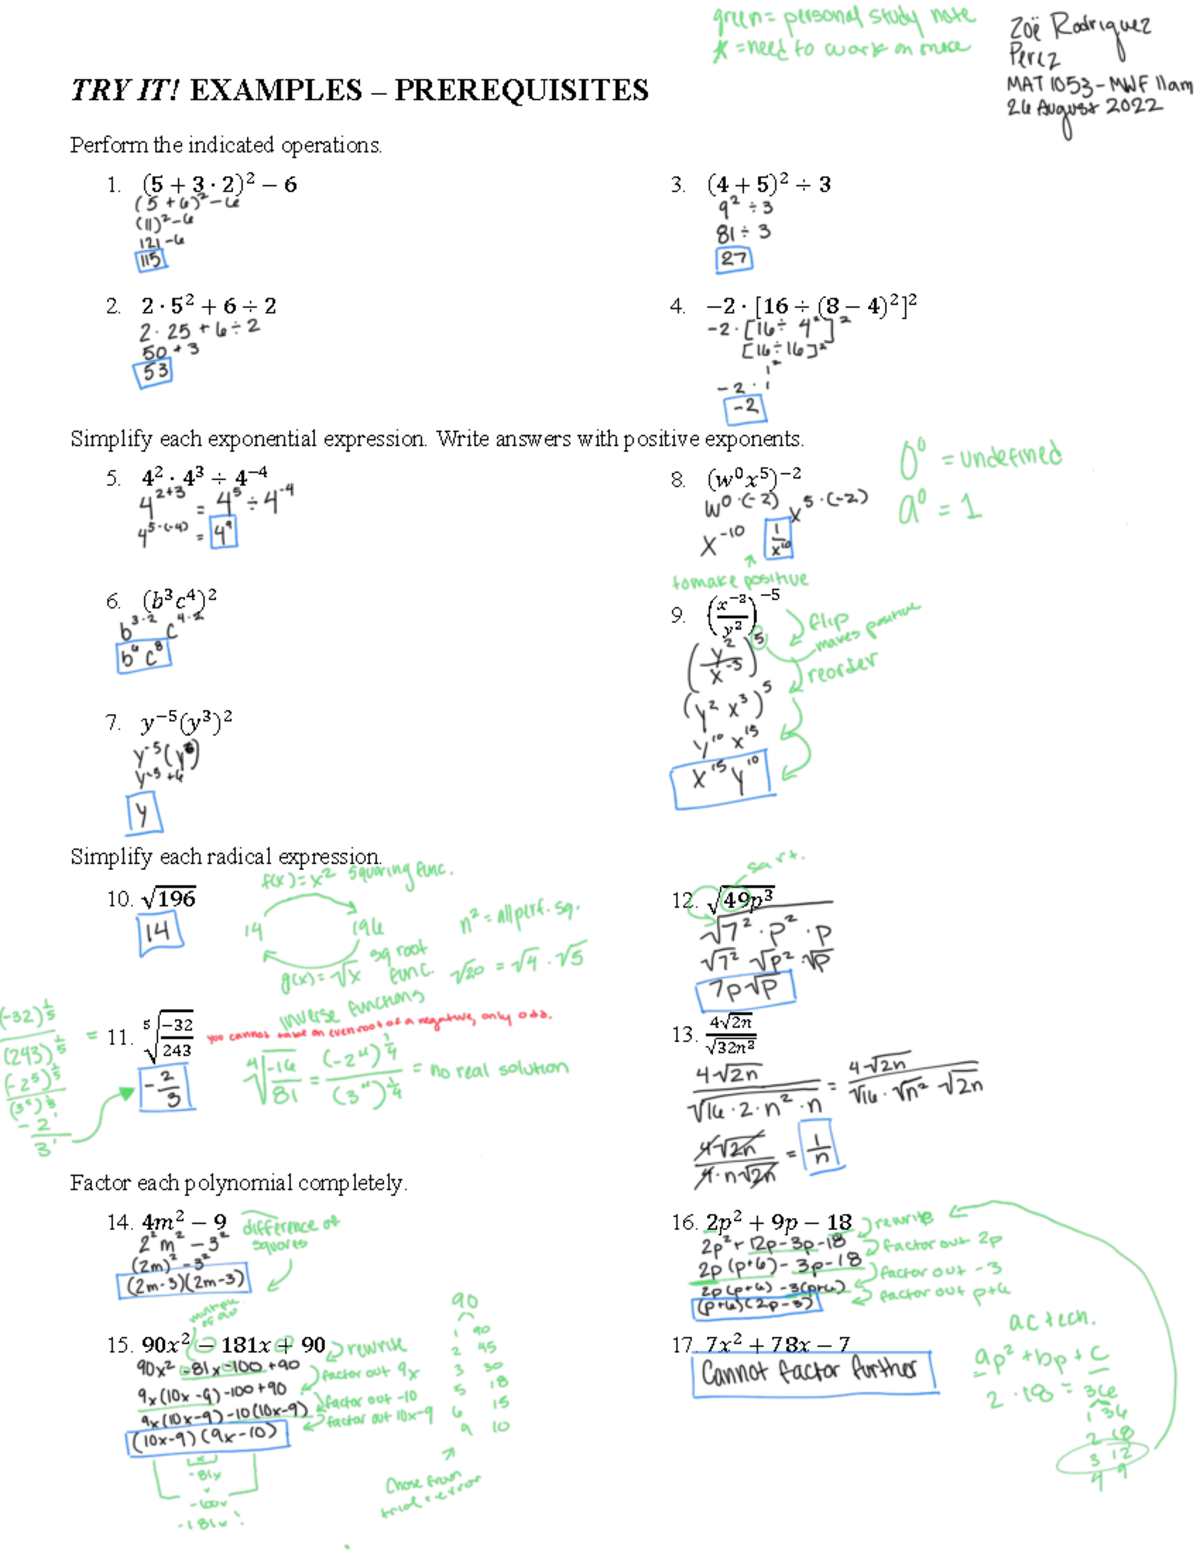 green = personal study note
* = need to work on more
Zoë Rodriguez
Perez
MAT 1053 - MWF 11am
26 August 2022
TRY IT! EXAMPLES – PREREQUISITES
Perform the indicated operations.
1. (5 + 3 · 2)² − 6
(5 + 6)² - 6
(11)² - 6
121 - 6
115
3. (4 + 5)² ÷ 3
9² ÷ 3
81 ÷ 3
27
2. 2 · 5² + 6 ÷ 2
2 · 25 + 6 ÷ 2
50 + 3
53
4. −2 · [16 ÷ (8 − 4)²]²
-2 · [16 ÷ 4²]²
[16 ÷ 16]²
1²
-2 · 1
-2
Simplify each exponential expression. Write answers with positive exponents.
5. 4² · 4³ ÷ 4⁻⁴
4²⁺³ = 4⁵ ÷ 4⁻⁴
4⁵⁻⁽⁻⁴⁾ = 4⁹
8. (w⁰x⁵)⁻²
w^0·(-2) x^5·(-2)
x⁻¹⁰ 1/x¹⁰
to make positive
0⁰ = undefined
a⁰ = 1
6. (b³c⁴)²
b^3·2 c^4·2
b⁶c⁸
9. (x⁻³/y²)⁻⁵
(y²/x⁻³)⁵
(y² x³)⁵
y¹⁰ x¹⁵
x¹⁵ y¹⁰
flip
makes positive
reorder
7. y⁻⁵(y³)²
y⁻⁵(y⁶)
y⁻⁵⁺⁶
y
Simplify each radical expression.
10. √196
14
f(x) = x² squaring func.
14 196
g(x) = √x sq root func.
inverse functions
n² = all perf. sq.
√20 = √4 · √5
12. √49p³
sq rt.
√7² · p² · p
√7² √p² √p
7p√p
11. ⁵√(−32/243)
(-32)^1/5 / (243)^1/5 =
(-2⁵)^1/5 / (3⁵)^1/5
-2¹/3¹
-2/3
you cannot take an even root of a negative, only odd.
⁴√(-16/81) = (-2⁴)^1/4 / (3⁴)^1/4 = no real solution
13. 4√2n / √32n³
4√2n / √16·2·n²·n = 4√2n / √16·√n² √2n
4√2n / 4·n√2n = 1/n
Factor each polynomial completely.
14. 4m² − 9
difference of squares
2² m² - 3²
(2m)² - 3²
(2m-3)(2m-3)
16. 2p² + 9p − 18 rewrite
2p² + 12p - 3p - 18 factor out 2p
2p(p+6) - 3p - 18 factor out -3
2p(p+6) - 3(p+6) factor out p+6
(p+6)(2p-3)
15. 90x² − 181x + 90 rewrite
multiple of 90
90x² - 81x - 100 + 90 factor out 9x
9x(10x-9) - 100 + 90 factor out -10
9x(10x-9) - 10(10x-9) factor out 10x-9
(10x-9)(9x-10)
-81x
-100x
-181x!
90
1 90
2 45
3 30
5 18
6 15
9 10
Chose from
trial + error
17. 7x² + 78x − 7
Cannot factor further
ac tech.
ap² + bp + c
2 · 18 = 36
1 36
2 18
3 12
4 9